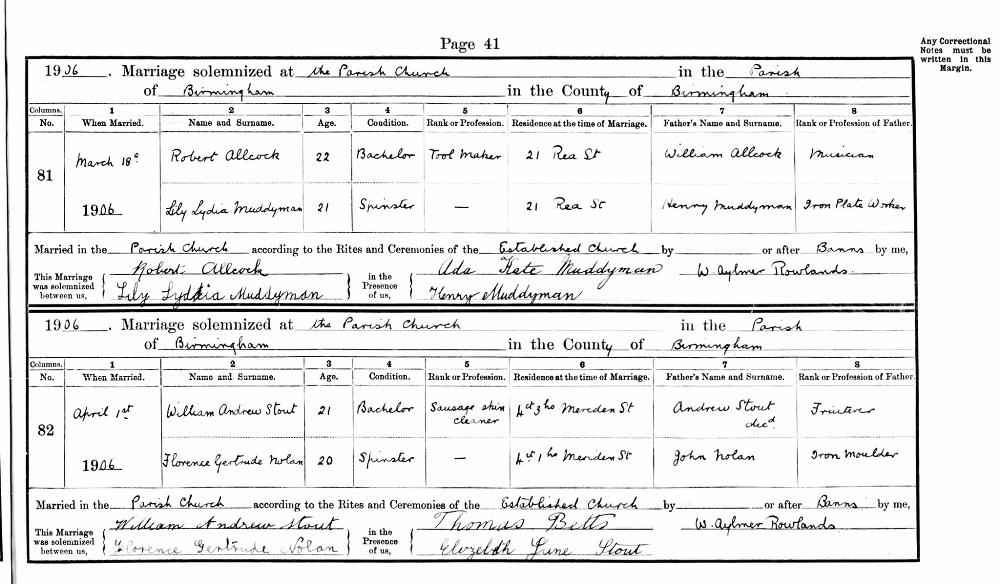 Page 41
Any Correctional
Notes must be
written in this
Margin.
1906. Marriage solemnized at the Parish Church in the Parish
of Birmingham in the County of Birmingham
Columns. 1 2 3 4 5 6 7 8
No. When Married. Name and Surname. Age. Condition. Rank or Profession. Residence at the time of Marriage. Father's Name and Surname. Rank or Profession of Father.
81 March 18th Robert Allcock 22 Bachelor Tool Maker 21 Rea St William Allcock Musician
1906 Lily Lydia Muddyman 21 Spinster — 21 Rea St Henry Muddyman Iron Plate Worker
Married in the Parish Church according to the Rites and Ceremonies of the Established Church by or after Banns by me,
This Marriage was solemnized between us, Robert Allcock in the Presence of us, Ada Kate Muddyman W. Aylmer Rowlands.
Lily Lydia Muddyman Henry Muddyman
1906. Marriage solemnized at the Parish Church in the Parish
of Birmingham in the County of Birmingham
Columns. 1 2 3 4 5 6 7 8
No. When Married. Name and Surname. Age. Condition. Rank or Profession. Residence at the time of Marriage. Father's Name and Surname. Rank or Profession of Father.
82 April 1st William Andrew Stout 21 Bachelor Sausage skin cleaner 4ct 3ho Meriden St Andrew Stout decd
1906 Florence Gertrude Nolan 20 Spinster — 4ct 1ho Meriden St John Nolan Iron Moulder
Married in the Parish Church according to the Rites and Ceremonies of the Established Church by or after Banns by me,
This Marriage was solemnized between us, William Andrew Stout in the Presence of us, Thomas Betts W. Aylmer Rowlands
Florence Gertrude Nolan Jane Stout